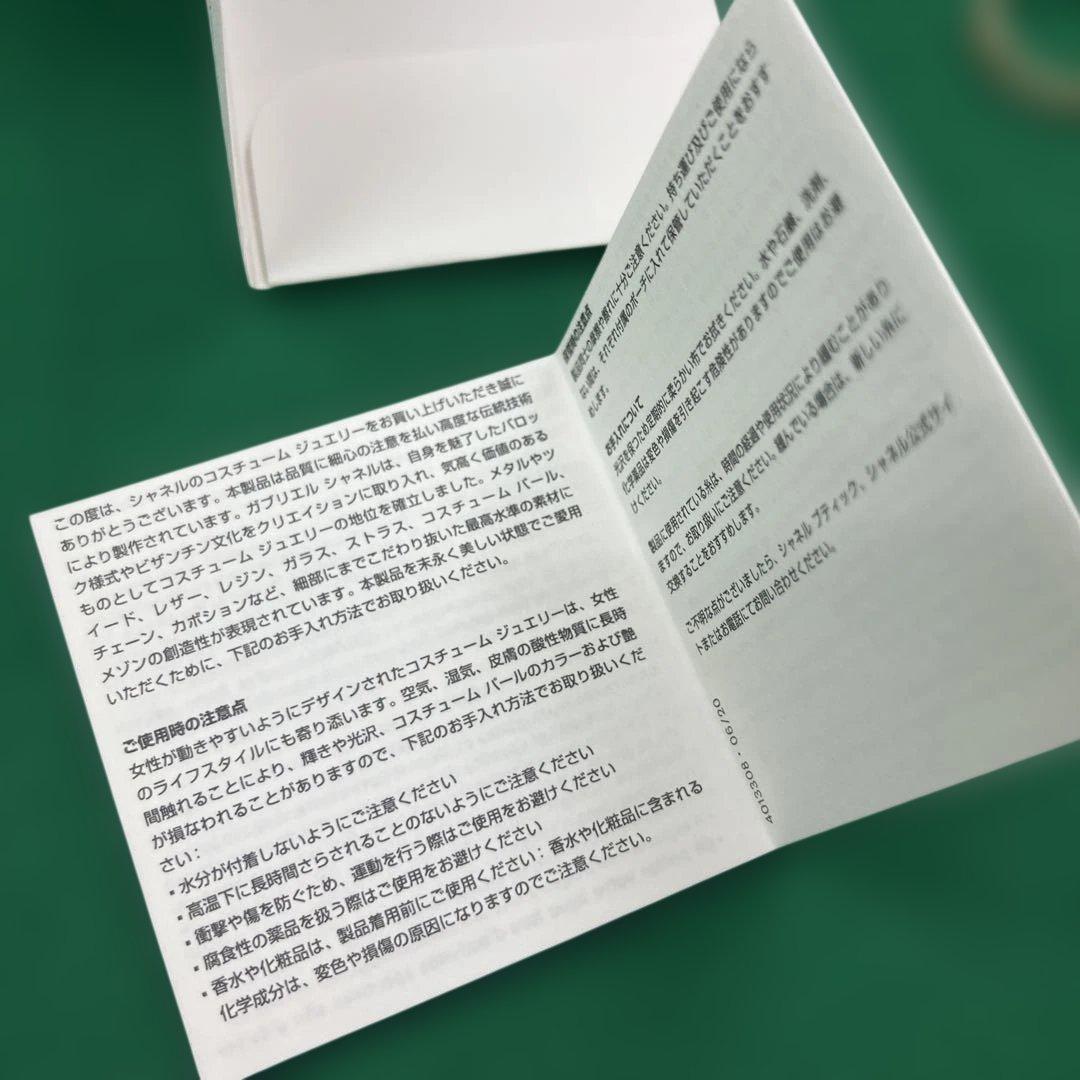 この度は、シャネルのコスチューム ジュエリーをお買い上げいただき誠に
ありがとうございます。本製品は品質に細心の注意を払い高度な伝統技術
により製作されています。ガブリエル シャネルは、自身を魅了したバロッ
ク様式やビザンチン文化をクリエイションに取り入れ、気高く価値のある
ものとしてコスチューム ジュエリーの地位を確立しました。メタルやツ
イード、レザー、レジン、ガラス、ストラス、コスチューム パール、
チェーン、カボションなど、細部にまでこだわり抜いた最高水準の素材に
メゾンの創造性が表現されています。本製品を末永く美しい状態でご愛用
いただくために、下記のお手入れ方法でお取り扱いください。
ご使用時の注意点
女性が動きやすいようにデザインされたコスチューム ジュエリーは、女性
のライフスタイルにも寄り添います。空気、湿気、皮膚の酸性物質に長時
間触れることにより、輝きや光沢、コスチューム パールのカラーおよび艶
が損なわれることがありますので、下記のお手入れ方法でお取り扱いくだ
さい：
▪ 水分が付着しないようにご注意ください
▪ 高温下に長時間さらされることのないようにご注意ください
▪ 衝撃や傷を防ぐため、運動を行う際はご使用をお避けください
▪ 腐食性の薬品を扱う際はご使用をお避けください
▪ 香水や化粧品は、製品着用前にご使用ください：香水や化粧品に含まれる
化学成分は、変色や損傷の原因になりますのでご注意ください。
保管時の注意点
製品同士の摩擦や擦れに十分ご注意ください。持ち運び及びご使用になら
ない際は、それぞれ付属のポーチに入れて保管していただくことをおすす
めします。
お手入れについて
光沢を保つため定期的に柔らかい布でお拭きください。水や石鹸、洗剤、
化学薬品は変色や損傷を引き起こす危険性がありますのでご使用はお避
けください。
製品に使用されている糸は、時間の経過や使用状況により緩むことがあり
ますので、お取り扱いにご注意ください。緩んでいる場合は、新しい糸に
交換することをおすすめします。
ご不明な点がございましたら、シャネル ブティック、シャネル公式サイ
トまたはお電話にてお問い合わせください。
4013308 - 06/20